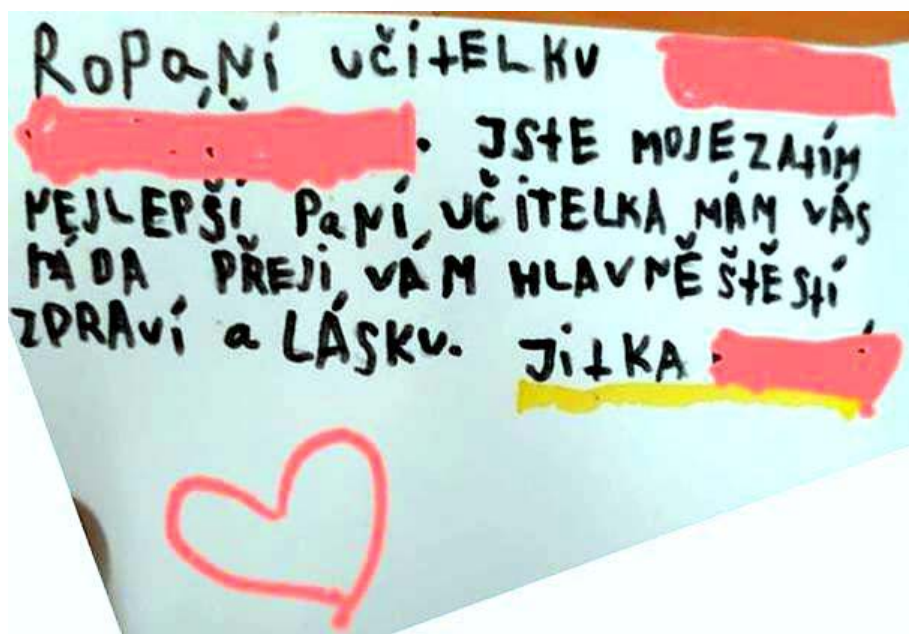 RoPaNí UČitELKU
. JStE MOJE ZAtÍM
NEJLEPŠÍ PaNÍ UČiTELKA MÁM VÁS
RÁDA PŘEJI VÁM HLAVNĚ ŠtĚStÍ
ZDRAVÍ a LÁSKU. JitKA